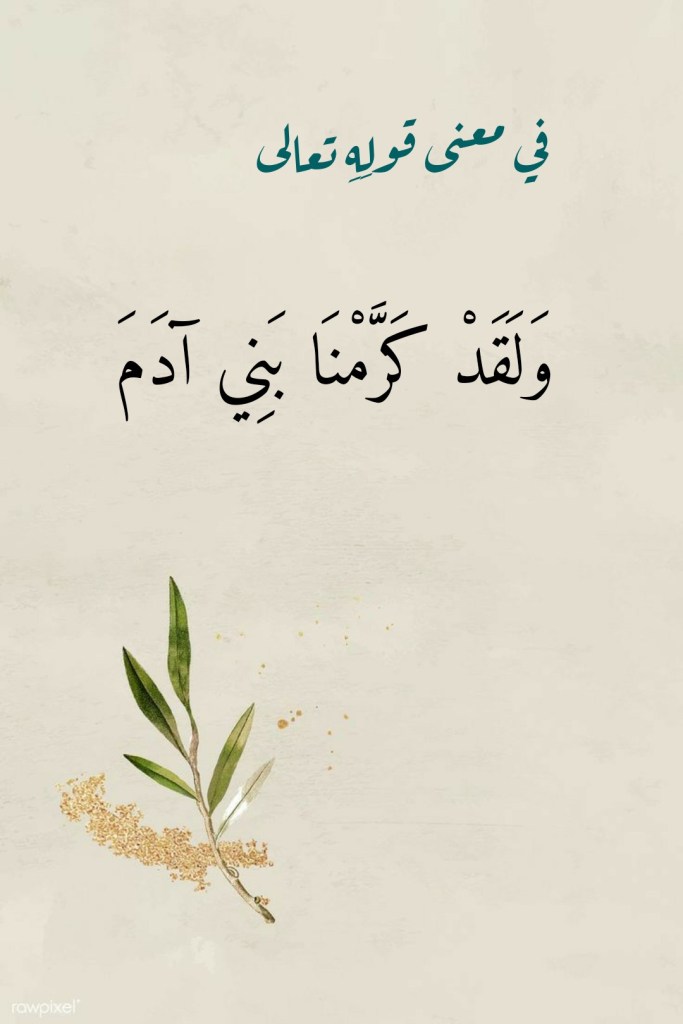 في معنى قولِهِ تعالى
وَلَقَدْ كَرَّمْنَا بَنِي آدَمَ
rawpixel